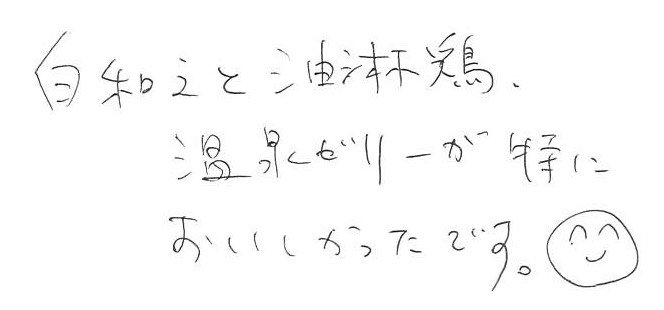 白和えと油淋鶏、
温泉ゼリーが特に
おいしかったです。